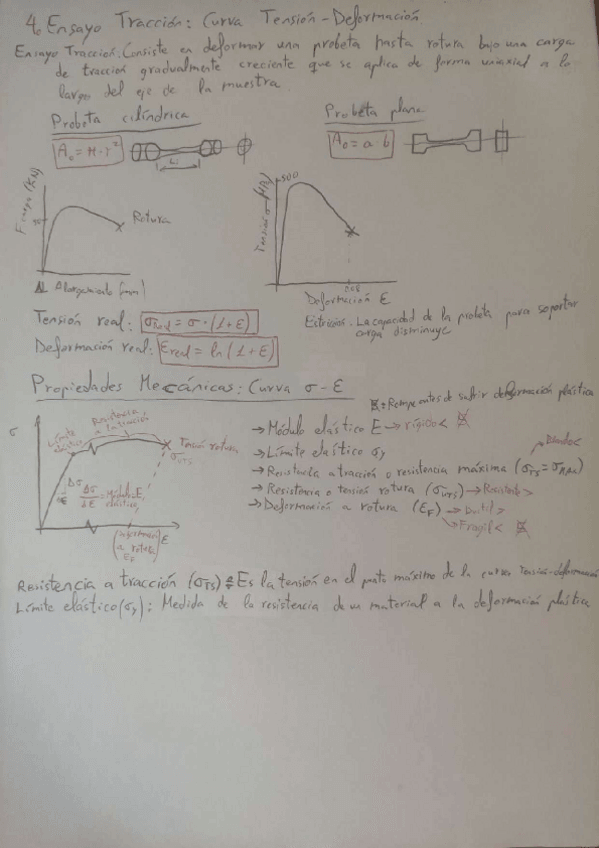 4. Ensayo Tracción: Curva Tensión-Deformación
Ensayo Tracción: Consiste en deformar una probeta hasta rotura bajo una carga
de tracción gradualmente creciente que se aplica de forma uniaxial a lo
largo del eje de la muestra.
Probeta cilíndrica
Probeta plana
A₀ = π·r²
A₀ = a·b
F carga (KN)
Rotura
ΔL Alargamiento (mm)
500
Tensión σ (MPa)
Deformación ε
Tensión real: σreal = σ·(1+ε)
Deformación real: εreal = ln(1+ε)
Estricción. La capacidad de la probeta para soportar
carga disminuye
Propiedades Mecánicas: Curva σ-ε
Rompe antes de sufrir deformación plástica
σ
Límite elástico
Resistencia a la tracción
Tensión rotura
σUTS
Δσ
Δε
Δσ/Δε = Módulo E, elástico
Deformación a rotura εF
ε
→ Módulo elástico E → rígido <
→ Límite elástico σy
→ Resistencia a tracción o resistencia máxima (σTS = σMax)
→ Resistencia o tensión rotura (σUTS) → Resistente >
→ Deformación a rotura (εF) → Dúctil >
→ Frágil <
Resistencia a tracción (σTS) Es la tensión en el punto máximo de la curva tensión-deformación
Límite elástico (σy): Medida de la resistencia de un material a la deformación plástica